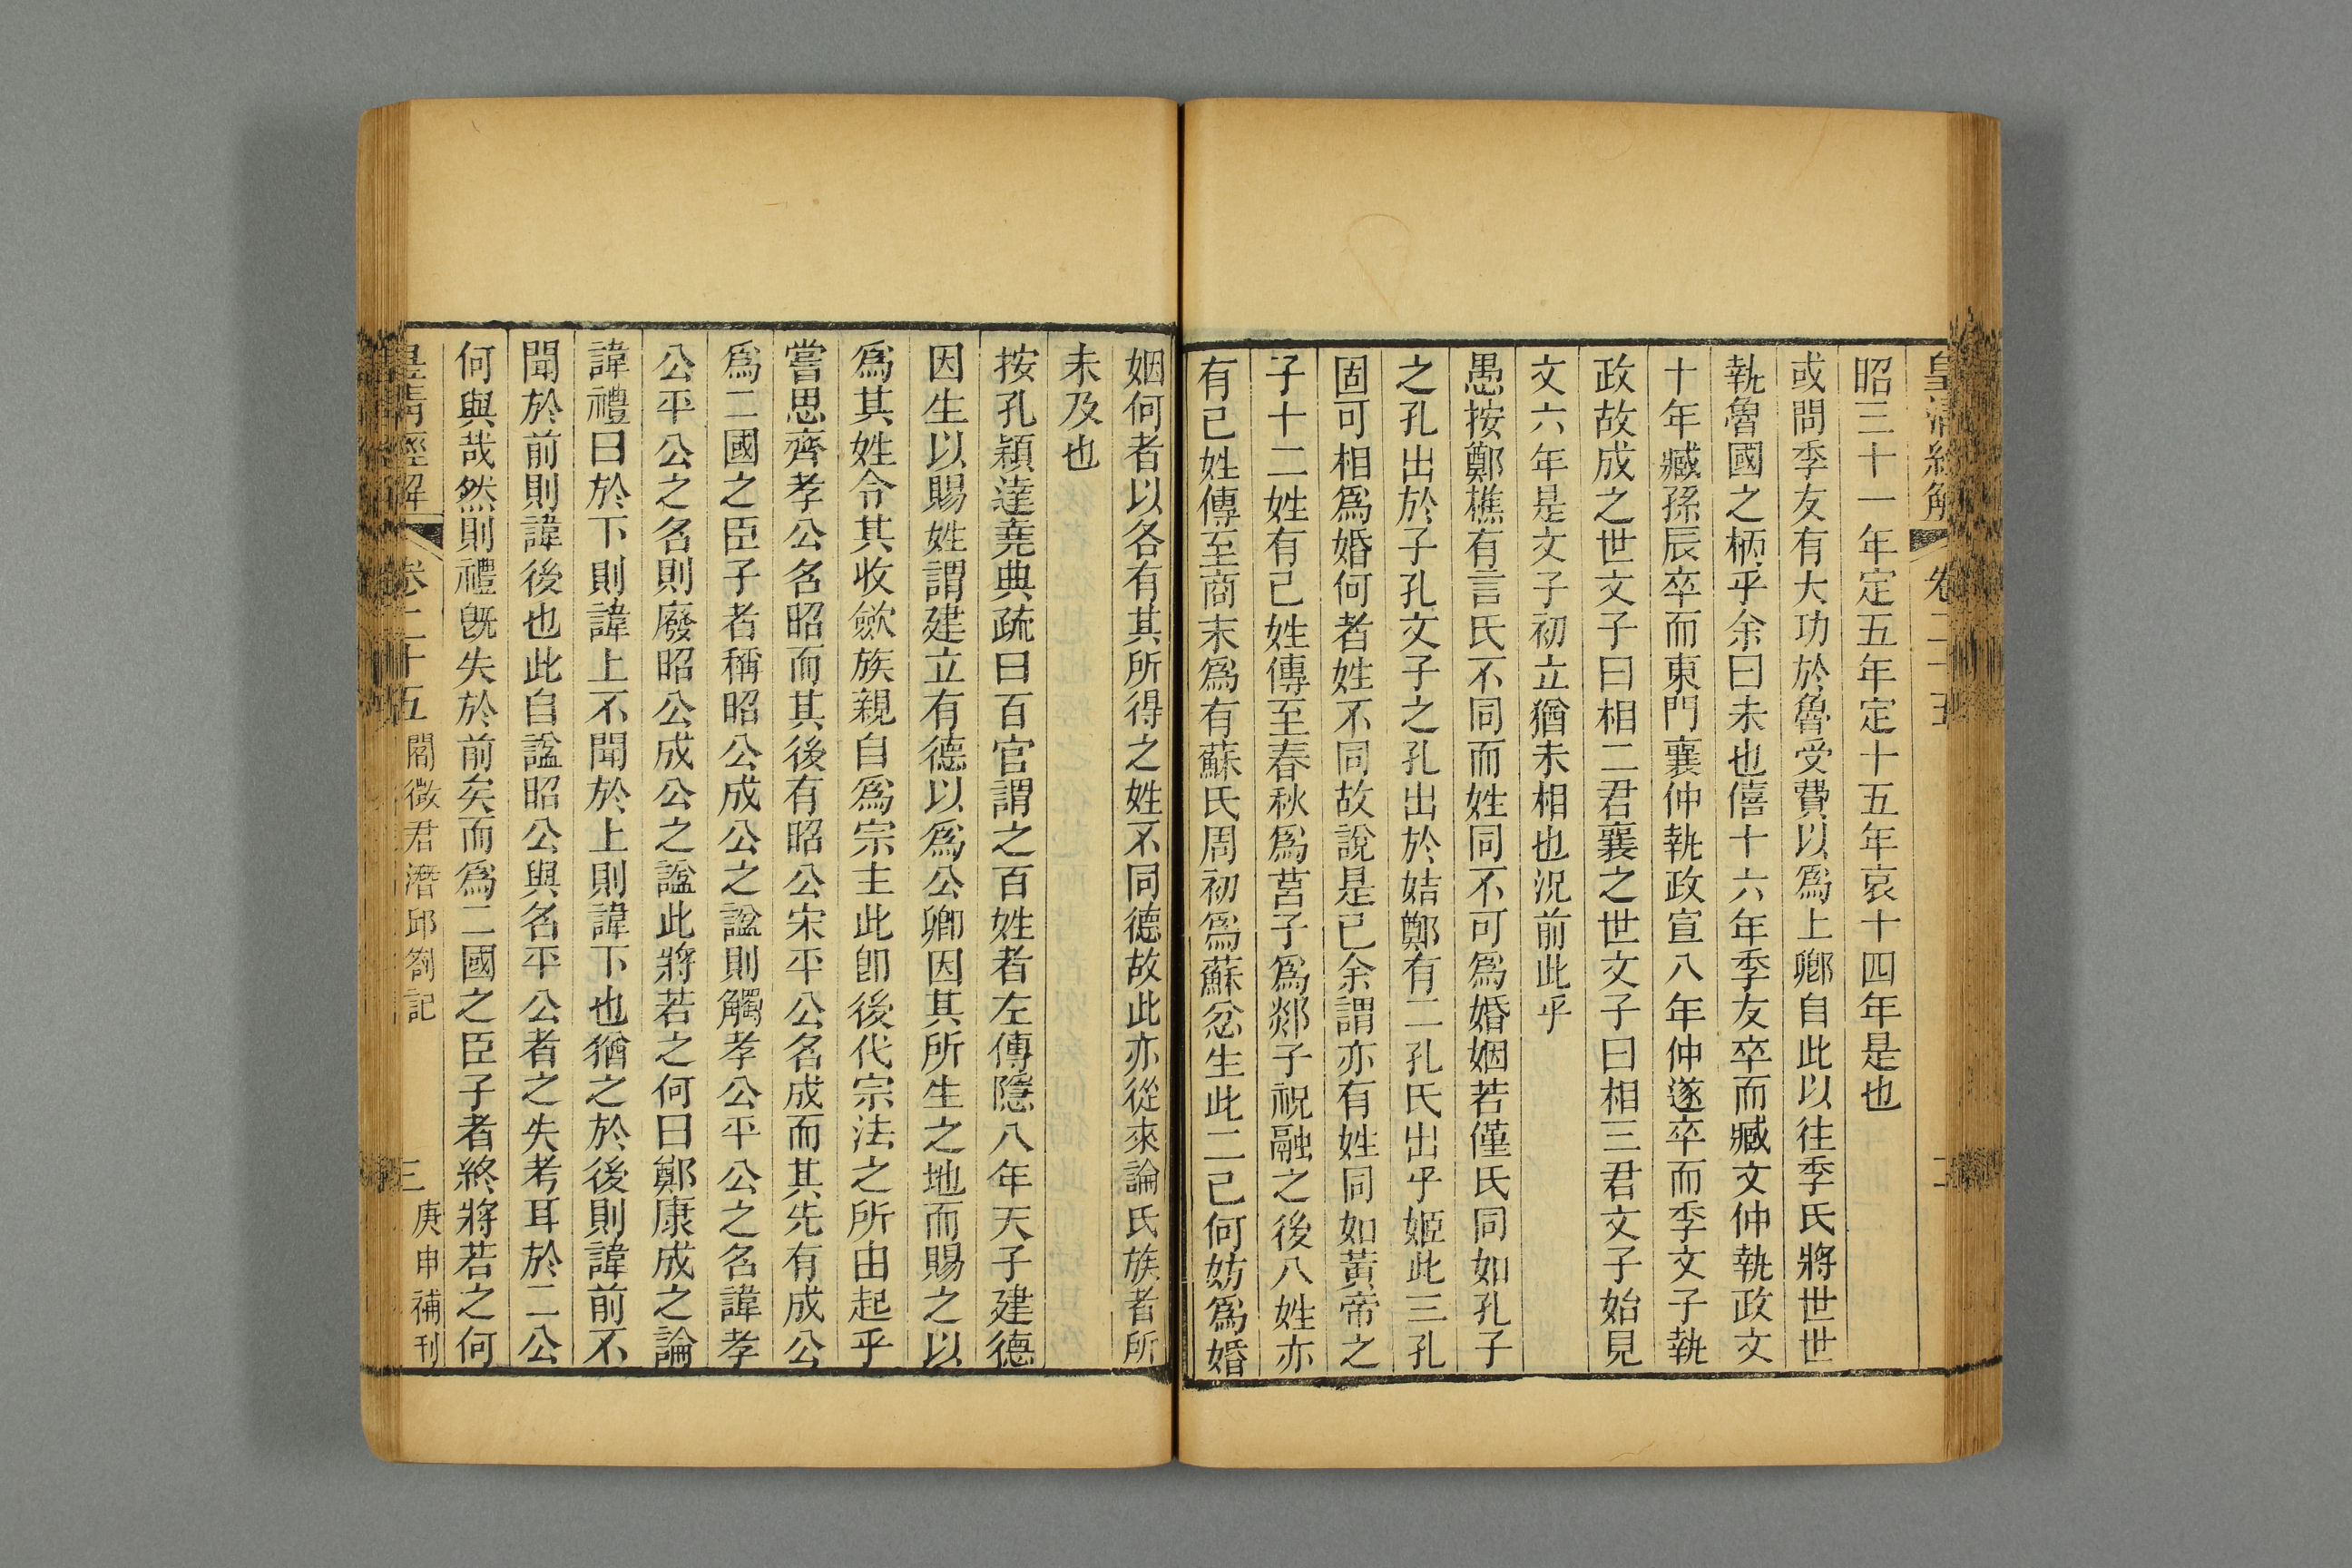 皇清經解 卷二十五 二
昭三十一年定五年定十五年哀十四年是也
或問季友有大功於魯受費以爲上卿自此以往季氏將世世
執魯國之柄乎余曰未也僖十六年季友卒而臧文仲執政文
十年臧孫辰卒而東門襄仲執政宣八年仲遂卒而季文子執
政故成之世文子曰相二君襄之世文子曰相三君文子始見
文六年是文子初立猶未相也況前此乎
愚按鄭樵有言氏不同而姓同不可爲婚姻若僅氏同如孔子
之孔出於子孔文子之孔出於姞鄭有二孔氏出乎姬此三孔
固可相爲婚何者姓不同故說是已余謂亦有姓同如黃帝之
子十二姓有己姓傳至春秋爲莒子爲郯子祝融之後八姓亦
有己姓傳至商末爲有蘇氏周初爲蘇忿生此二己何妨爲婚
姻何者以各有其所得之姓不同德故此亦從來論氏族者所
未及也
按孔穎達堯典疏曰百官謂之百姓者左傳隱八年天子建德
因生以賜姓謂建立有德以爲公卿因其所生之地而賜之以
爲其姓令其收斂族親自爲宗主此卽後代宗法之所由起乎
嘗思齊孝公名昭而其後有昭公宋平公名成而其先有成公
爲二國之臣子者稱昭公成公之諡則觸孝公平公之名諱孝
公平公之名則廢昭公成公之諡此將若之何曰鄭康成之論
諱禮曰於下則諱上不聞於上則諱下也猶之於後則諱前不
聞於前則諱後也此自諡昭公與名平公者之失考耳於二公
何與哉然則禮旣失於前矣而爲二國之臣子者終將若之何
皇清經解 卷二十五 閻徵君潛邱劄記 三 庚申補刊